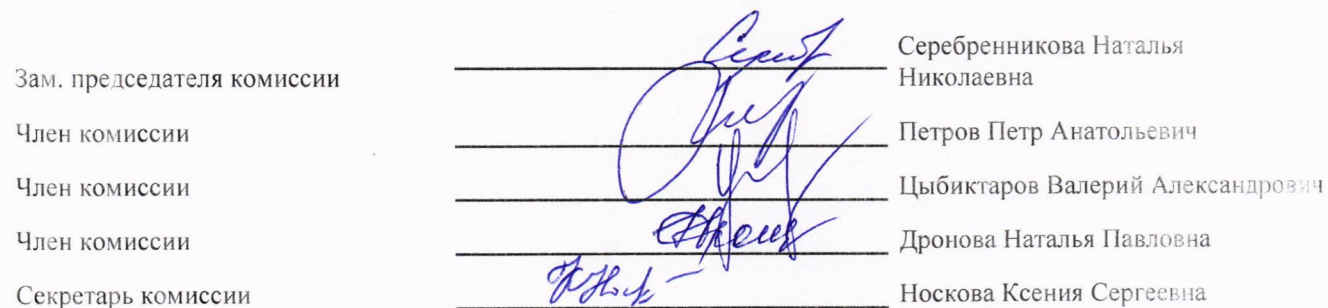 Зам. председателя комиссии Серебренникова Наталья
Николаевна
Член комиссии Петров Петр Анатольевич
Член комиссии Цыбиктаров Валерий Александрович
Член комиссии Дронова Наталья Павловна
Секретарь комиссии Носкова Ксения Сергеевна